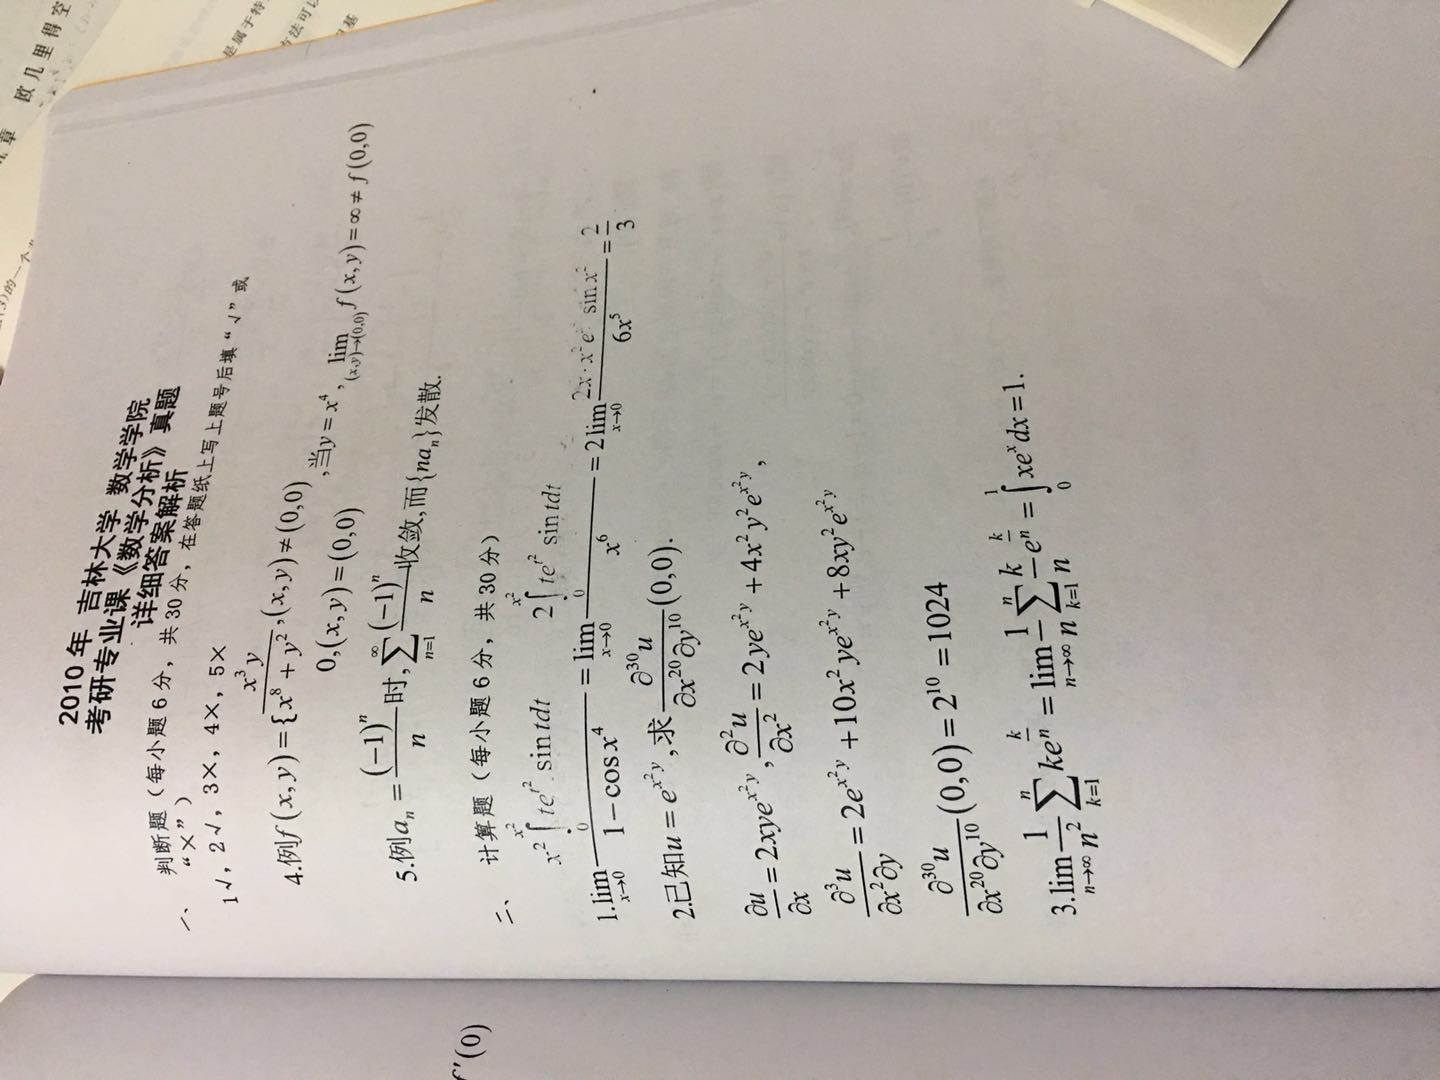 2010 年 吉林大学 数学学院
考研专业课《数学分析》真题
详细答案解析
一、 判断题（每小题 6 分，共 30 分，在答题纸上写上题号后填“√”或
“×”）
1√, 2√, 3×, 4×, 5×
4.例f(x,y)={x³y/(x⁸+y²),(x,y)≠(0,0) ,当y=x⁴, lim(x,y)→(0,0) f(x,y)=∞≠f(0,0)
0,(x,y)=(0,0)
5.例aₙ=(-1)ⁿ/n 时,∑n=1^∞ (-1)ⁿ/n 收敛,而{naₙ}发散.
二、 计算题（每小题 6 分，共 30 分）
1.lim x→0 x²∫₀^{x²} te^{t²} sin tdt/(1-cos x⁴) = lim x→0 2∫₀^{x²} te^{t²} sin tdt/x⁶ = 2lim x→0 2x·x² e sin x²/6x⁵ = 2/3
2.已知u=e^{x²y},求∂³⁰u/∂x²⁰∂y¹⁰(0,0).
∂u/∂x=2xye^{x²y},∂²u/∂x²=2ye^{x²y}+4x²y²e^{x²y},
∂³u/∂x²∂y=2e^{x²y}+10x²ye^{x²y}+8xy²e^{x²y}
∂³⁰u/∂x²⁰∂y¹⁰(0,0)=2¹⁰=1024
3.lim n→∞ 1/n² ∑k=1^n ke^{k/n}=lim n→∞ 1/n ∑k=1^n k/n e^{k/n}=∫₀¹ xeˣdx=1.
f'(0)
章 欧几里得空